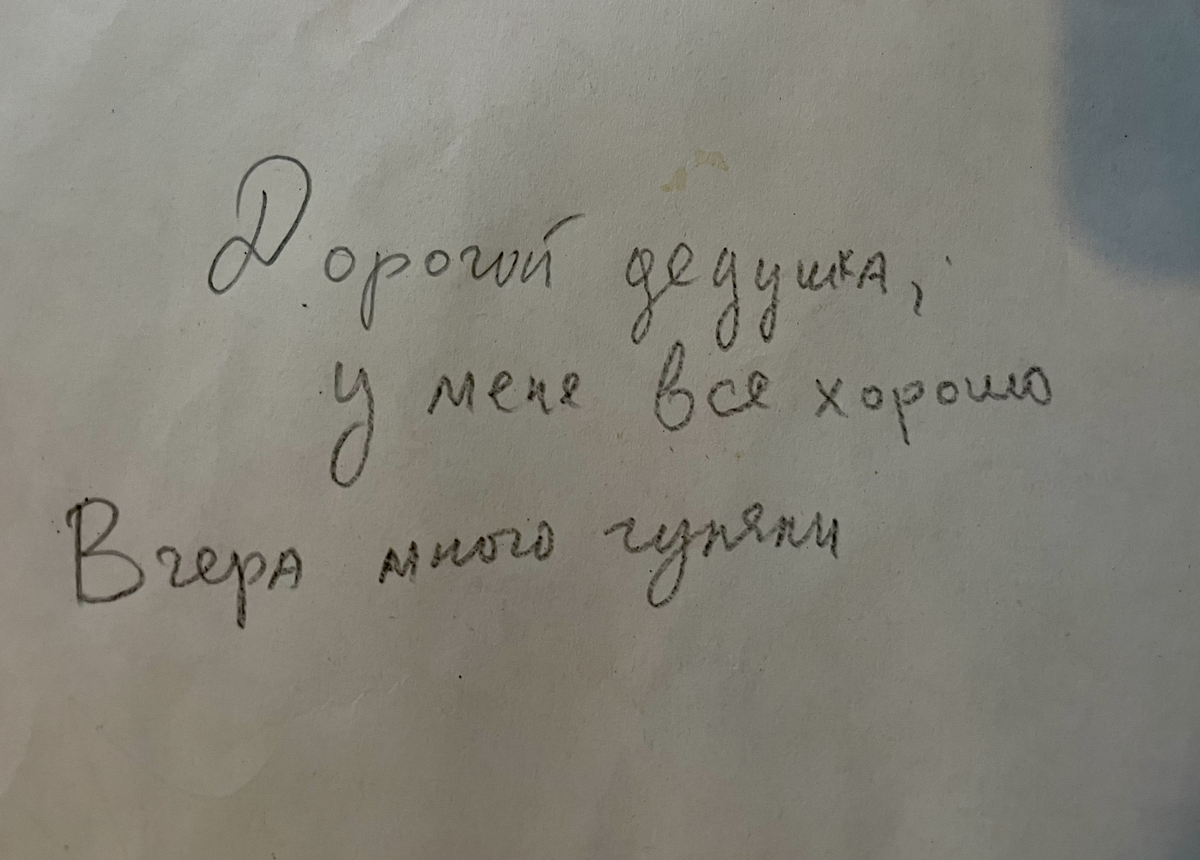 Дорогой дедушка,
у меня все хорошо
Вчера много гуляли